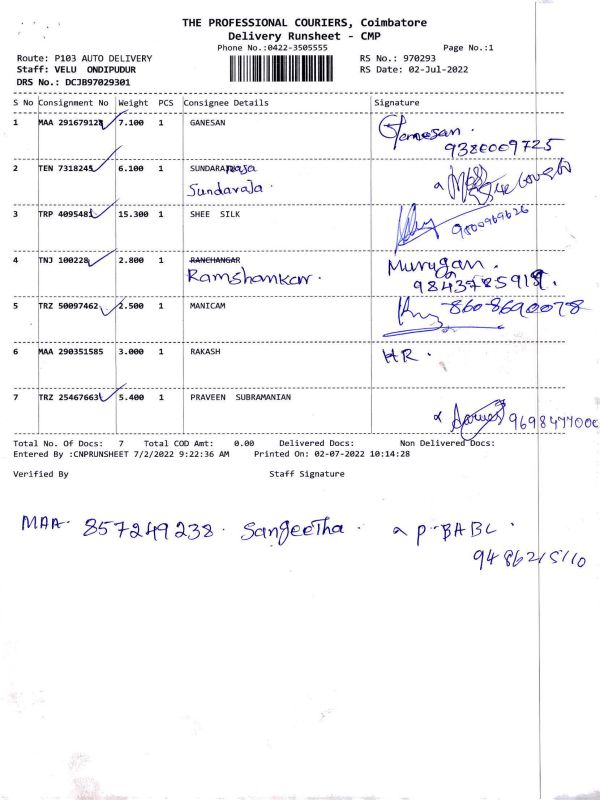 THE PROFESSIONAL COURIERS, Coimbatore
Delivery Runsheet - CMP
Phone No.:0422-3505555 Page No.:1
Route: P103 AUTO DELIVERY RS No.: 970293
Staff: VELU ONDIPUDUR RS Date: 02-Jul-2022
DRS No.: DCJB97029301
S No Consignment No Weight PCS Consignee Details Signature
1 MAA 291679128 7.100 1 GANESAN Ganesan.
9380009725
2 TEN 7318245 6.100 1 SUNDARARAJA
Sundaraja.
3 TRP 4095481 15.300 1 SHEE SILK
9800969626
4 TNJ 100228 2.800 1 RANCHANGAR Murugan.
Ramshankar. 9843785919.
5 TRZ 50097462 2.500 1 MANICAM 8608690078
6 MAA 290351585 3.000 1 RAKASH HR.
7 TRZ 25467663 5.400 1 PRAVEEN SUBRAMANIAN
Total No. Of Docs: 7 Total COD Amt: 0.00 Delivered Docs: Non Delivered Docs:
Entered By :CNPRUNSHEET 7/2/2022 9:22:36 AM Printed On: 02-07-2022 10:14:28
Verified By Staff Signature
MAA. 857249238. Sangeetha. P. BABL.
9486215110